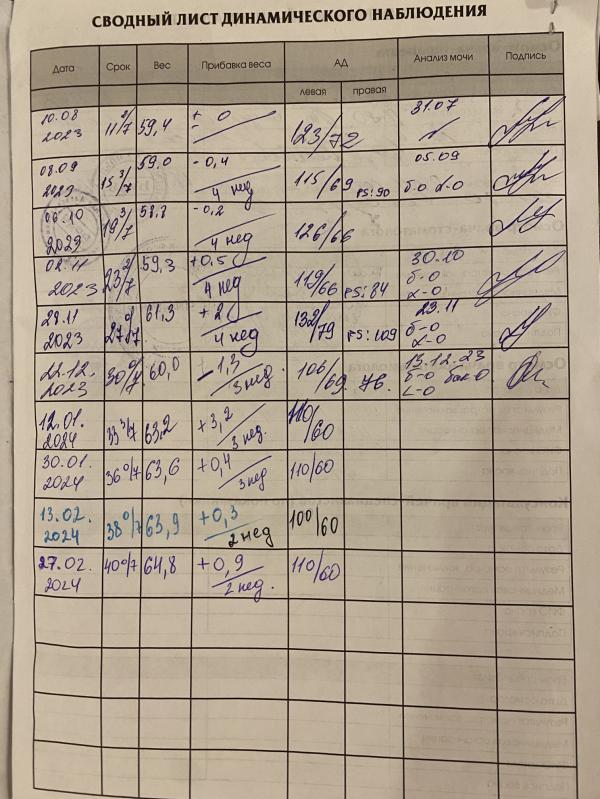 СВОДНЫЙ ЛИСТ ДИНАМИЧЕСКОГО НАБЛЮДЕНИЯ
Дата Срок Вес Прибавка веса АД Анализ мочи Подпись
левая правая
10.08 2023 11 2/7 59,4 + 0 123/72 31.07
08.09 2023 15 3/7 59.0 - 0,4 4 нед 115/69 PS: 90 05.09 б-0 L-0
06.10 2023 19 3/7 58.8 - 0,2 4 нед 126/66
02.11 2023 23 2/7 59,3 +0,5 4 нед 119/66 PS: 84 30.10 б-0 L-0
28.11 2023 27 0/7 61,3 + 2 4 нед 132/79 PS: 109 23.11 б-0 L-0
22.12. 2023 30 0/7 60,0 - 1,3 3 нед. 106/69. 76. 15.12.23 б-0 L-0
12.01. 2024 33 3/7 63,2 +3,2 3 нед. 110/60
30.01. 2024 36 0/7 63,6 +0,4 3 нед 110/60
13.02. 2024 38 0/7 63,9 +0,3 2 нед 100/60
27.02. 2024 40 0/7 64,8 + 0,9 2 нед. 110/60